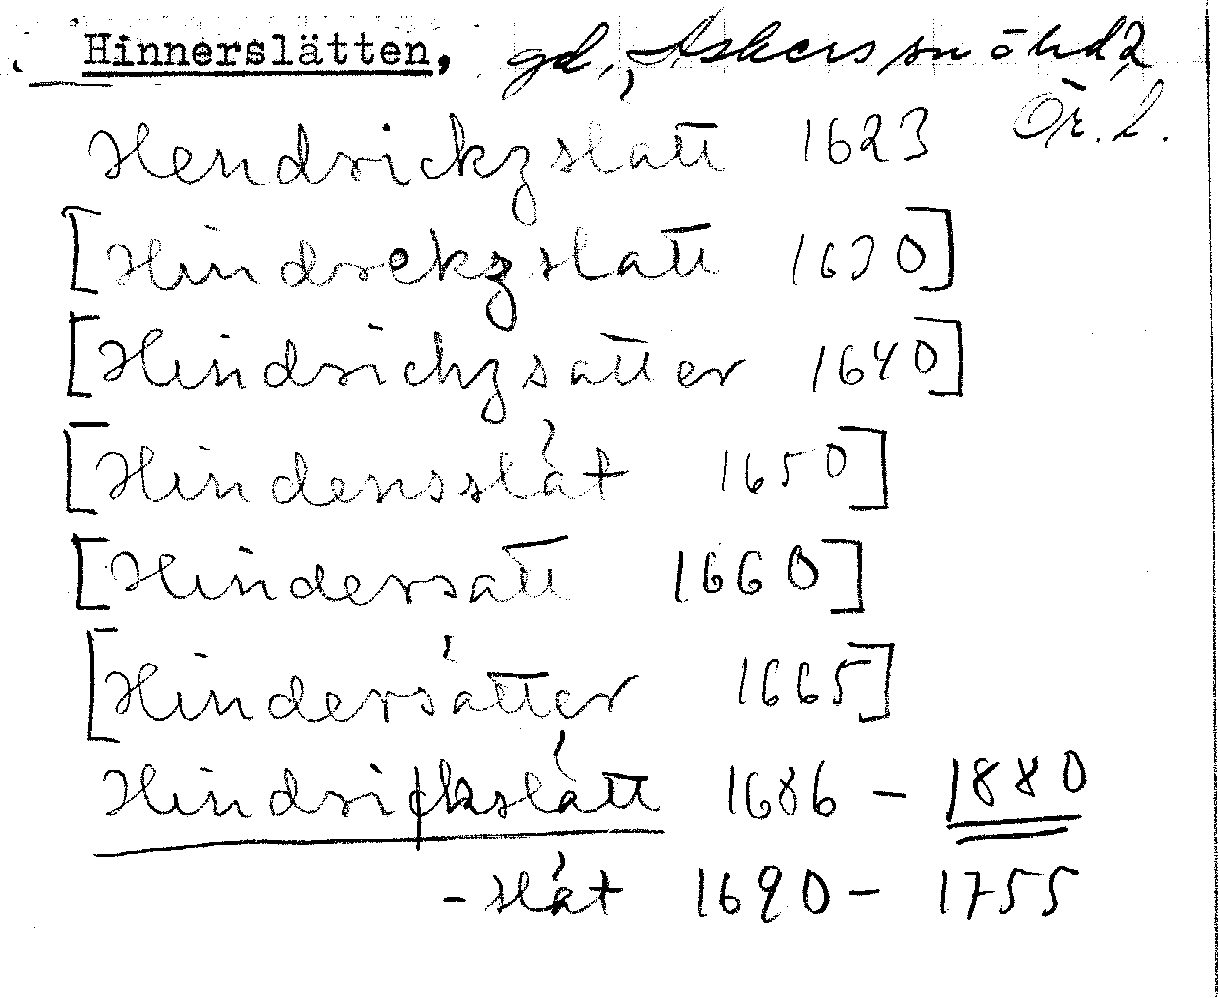 Hinnerslätten, gd, Askers sn o hd,
Ör. l.
Hendrickzslatt 1623
[Hindrckzslatt 1630]
[Hindrichzsatter 1640]
[Hindensslåt 1650]
[Hindersatt 1660]
[Hindersåtter 1665]
Hindrickslått 1686 – 1880
- slåt 1690 – 1755